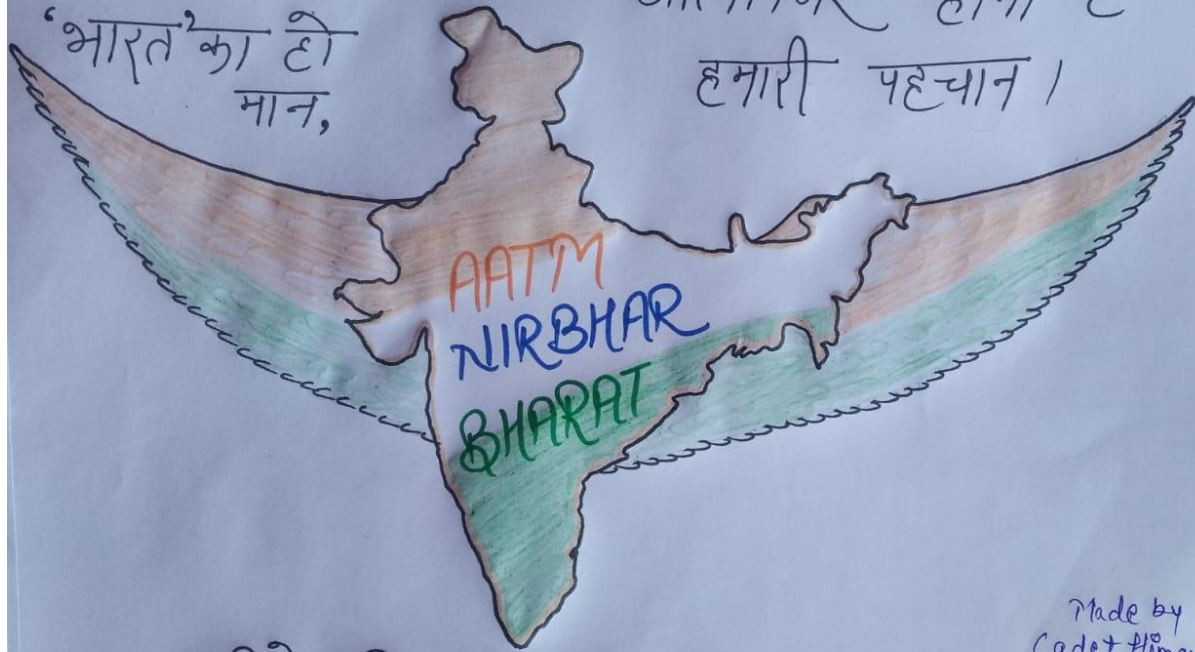 ‘भारत’ का हो
मान,
हमारी पहचान।
AATM
NIRBHAR
BHARAT
Made by
Cadet